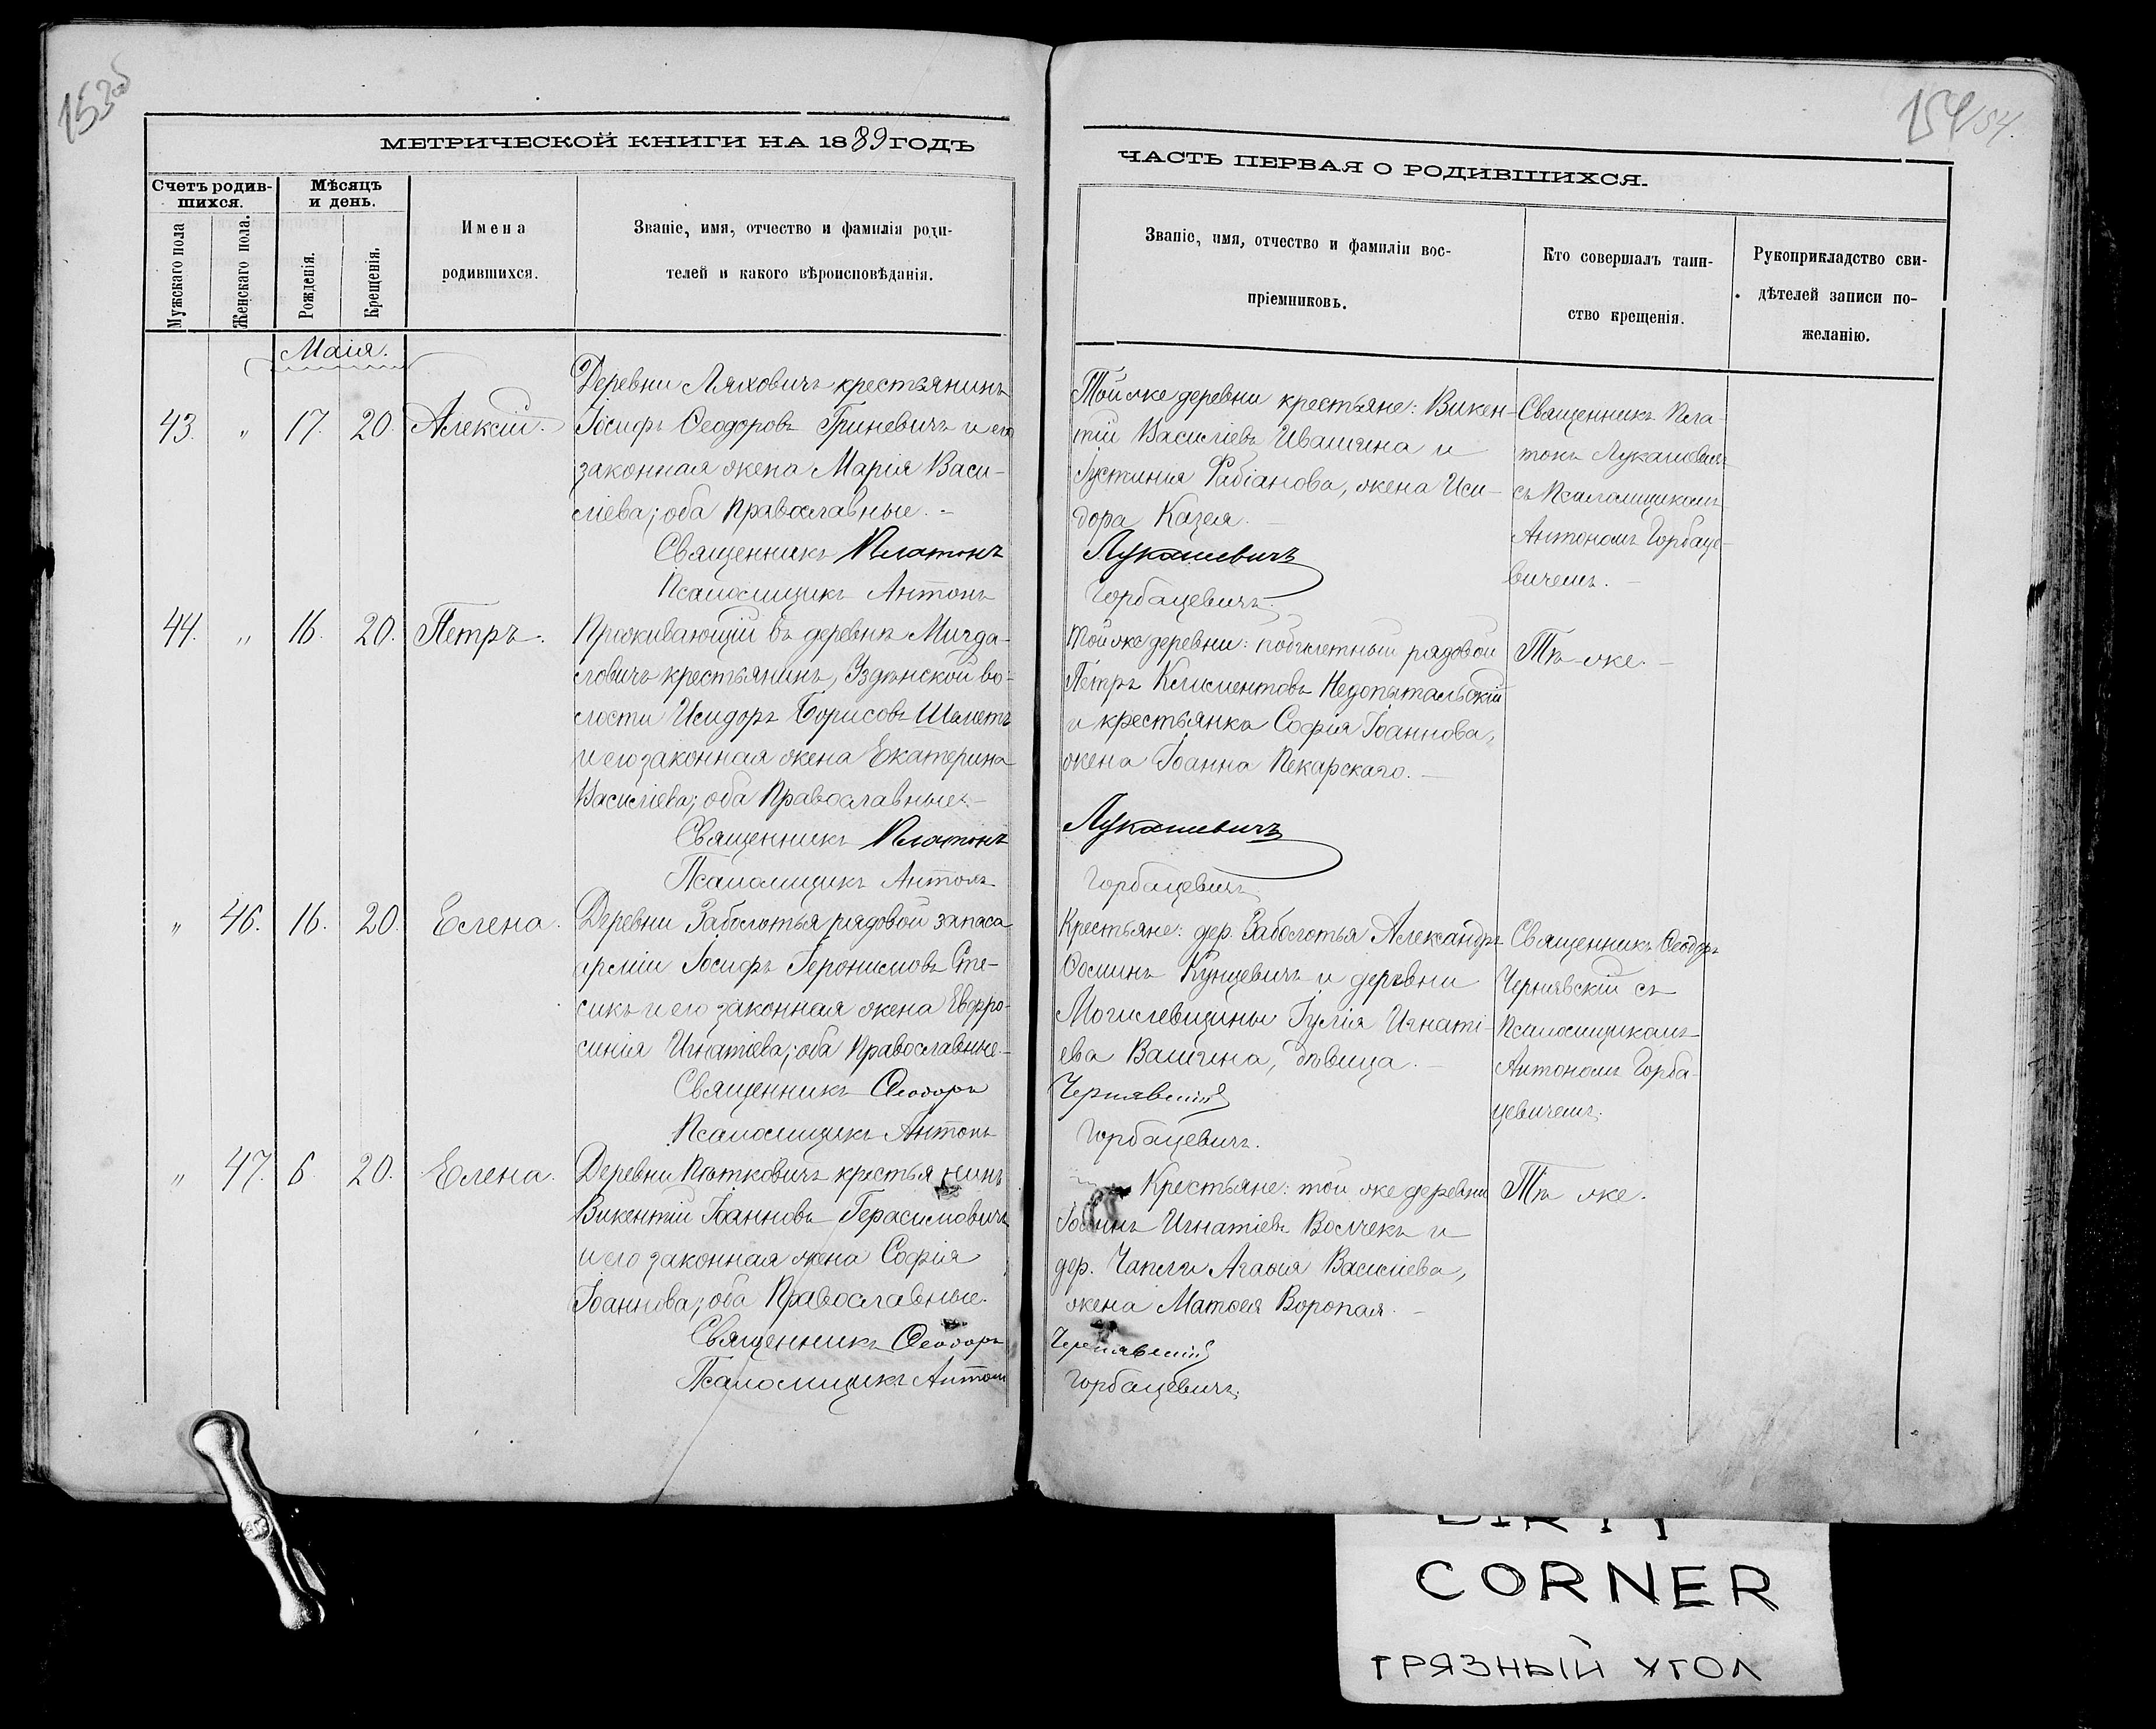 153об
МЕТРИЧЕСКОЙ КНИГИ НА 1889 ГОДЪ
Счетъ родив-
шихся.
Мѣсяцъ
и день.
Мужскаго пола
Женскаго пола.
Рожденія.
Крещенія.
Имена
родившихся.
Званіе, имя, отчество и фамилія роди-
телей и какого вѣроисповѣданія.
Маія.
43. " 17. 20. Алексій.
Деревни Ляховичъ крестьянинъ
Іосифъ Ѳеодоровъ Гриневичъ и его
законная жена Марія Васи-
ліева; оба Православные. -
Священникъ Платонъ
Псаломщикъ Антонъ
44. " 16. 20. Петръ.
Проживающій въ деревнѣ
крестьянинъ, Узденской во-
лости Исидоръ Борисовъ Шелетъ
и его законная жена Екатерина
Василіева; оба Православные. -
Священникъ Платонъ
Псаломщикъ Антонъ
" 46. 16. 20. Елена.
Деревни Заболотья рядовой запаса
арміи Іосифъ Іеронимовъ Сте-
сикъ и его законная жена Евфро-
синія Игнатіева; оба Православные. -
Священникъ Ѳеодоръ
Псаломщикъ Антонъ
" 47. 6. 20. Елена.
Деревни крестьянинъ
Викентій Іоанновъ Герасимовичъ
и его законная жена Софія
Іоаннова; оба Православные.
Священникъ Ѳеодоръ
Псаломщикъ Антонъ
154/54.
ЧАСТЬ ПЕРВАЯ О РОДИВШИХСЯ.
Званіе, имя, отчество и фамиліи вос-
пріемниковъ.
Кто совершалъ таин-
ство крещенія.
Рукоприкладство сви-
дѣтелей записи по-
желанію.
Той же деревни крестьяне: Викен-
тій Василіевъ Ивашина и
Іустинія Фабіанова, жена Иси-
дора Казея. -
Лукашевичъ
Горбацевичъ.
Священникъ Пла-
тонъ Лукашевичъ
съ Псаломщикомъ
Антономъ Горбаце-
вичемъ. -
Той же деревни: побилетный рядовой
Петръ Климентовъ Недопытальскій
и крестьянка Софія Іоаннова,
жена Іоанна Пекарскаго. -
Лукашевичъ
Горбацевичъ.
Тѣ-же. -
Крестьяне: дер. Заболотья Александръ
Ѳоминъ Кунцевичъ и деревни
Могилевщины Іулія Игнаті-
ева Вашкина, дѣвица. -
Чернявскій
Горбацевичъ.
Священникъ Ѳеодоръ
Чернявскій съ
Псаломщикомъ
Антономъ Горба-
цевичемъ.
Крестьяне: той же деревни
Іоаннъ Игнатіевъ Волчекъ и
дер. Чапли Агаѳія Василіева,
жена Матѳея Воропая. -
Чернявскій
Горбацевичъ.
Тѣ же.
DIRTY
CORNER
ГРЯЗНЫЙ УГОЛ